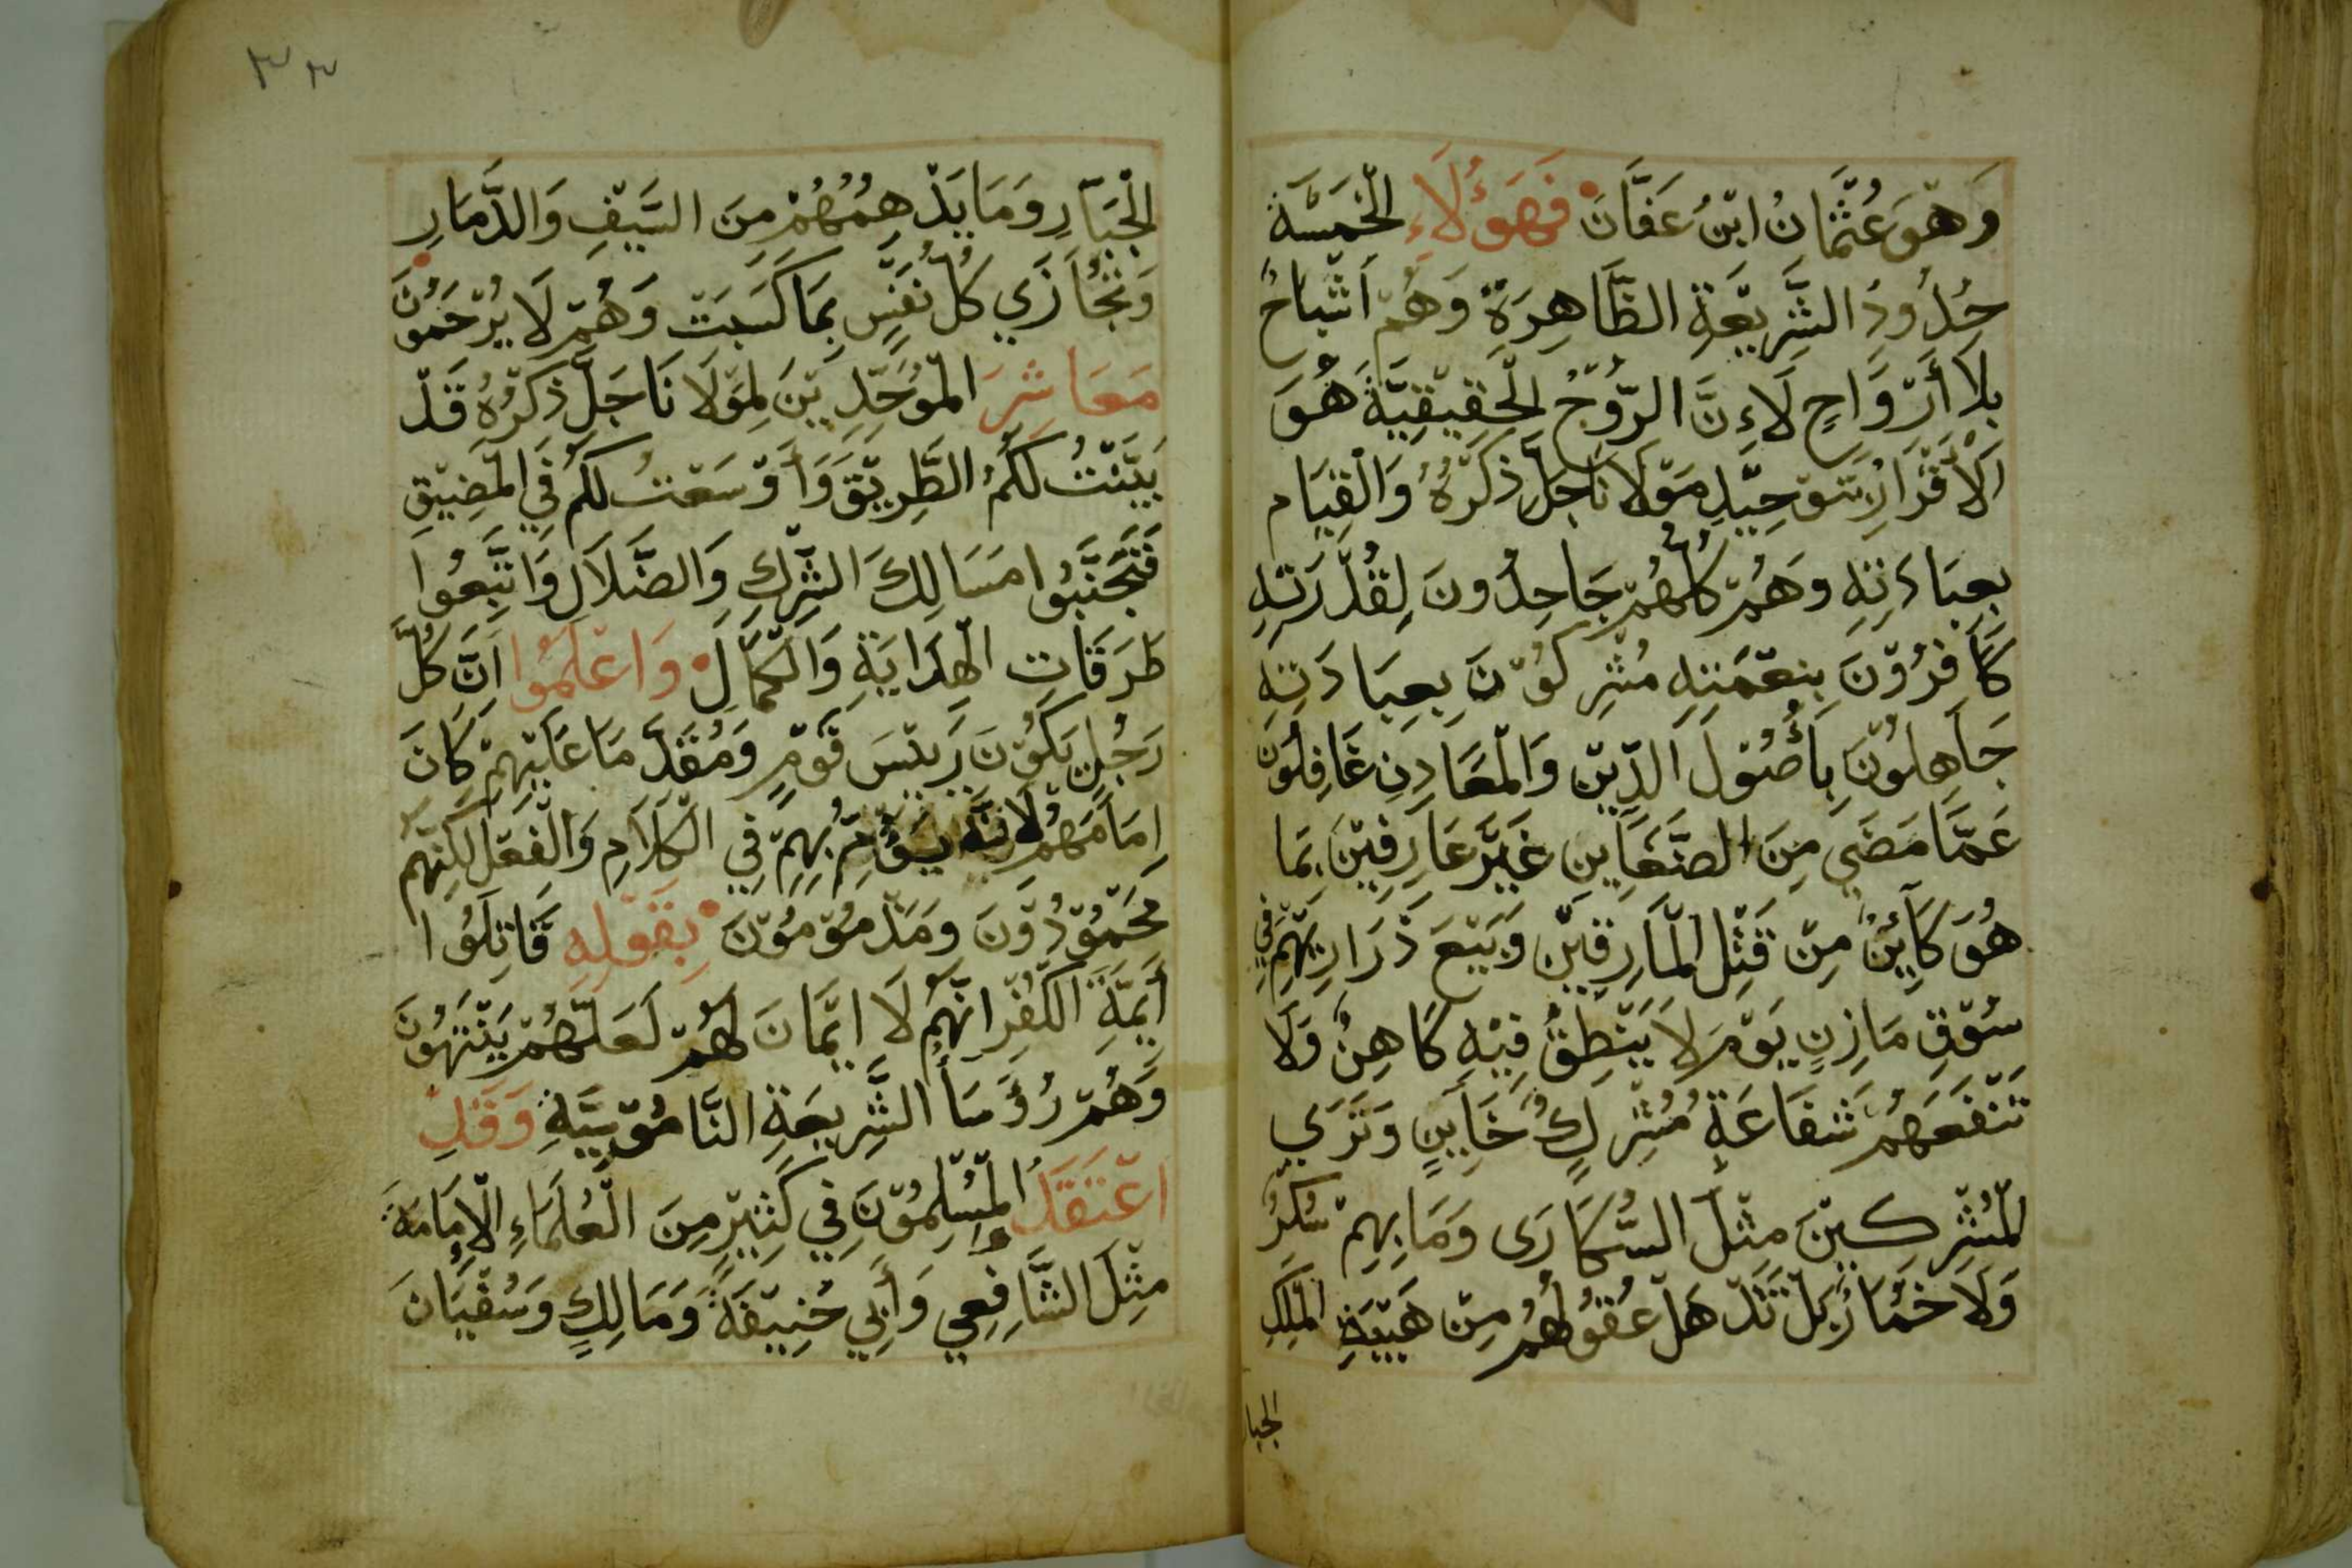 وَهُوَ عُثْمَانُ ابْنُ عَفَّانَ فَهَؤُلَاءِ الْخَمْسَةُ
حُدُودَ الشَّرِيْعَةِ الظَّاهِرَةِ وَهُمْ اَشْبَاحٌ
بِلَا أَرْوَاحٍ لَاءِنَّ الرُّوْحُ الْحَقِيْقِيَّةَ هُوَ
اَلْاَقْرَارُ بِتَوْحِيْدِ مَوْلَانَا جَلَّ ذِكْرُهُ وَالْقِيَام
بِعِبَادَتِهِ وَهُمْ كُلُّهُمْ جَاحِدُونَ لِقُدْرَتِهِ
كَافِرُوْنَ بِنِعْمَتِهِ مُشْرِكُوْنَ بِعِبَادَتِهِ
جَاهِلُوْنَ بِأُصُوْلَ الدِّيْنِ وَالْمَعَادِنِ غَافِلُوْنَ
عَمَّا مَضَى مِنَ الصَّغَاينِ غَيْرَ عَارِفِيْنَ بِمَا
هُوَ كَائِنٌ مِنْ قَتْلِ الْمَارِقِيْنِ وَبَيْعَ ذَرَارِيْهِمْ فِي
سُوْقِ مَازِنٍ يَوْمَ لَا يَنْطِقُ فِيْهِ كَاهِنٌ وَلَا
تَنْفَعَهُمْ شَفَاعَةٍ مُشْرِكٍ خَايِنٍ وَتَرَى
الْمُشْرِكِيْنَ مِثْلَ السُّكَارَى وَمَا بِهِمْ سُكْرُ
وَلَا خُمَارُ بَلْ تَذْهَلُ عُقُوْلُهُمْ مِنْ هَيْبَةِ الْمَلِكِ
الجبا
٣٣
الْجَبَّارِ وَمَا يَدْهِمُهُمْ مِنَ السَّيْفِ وَالدَّمَارِ
وَتُجَازَي كُلُّ نَفْسٍ بِمَا كَسَبَتْ وَهُمْ لَا يُرْحَمُوْنَ
مَعَاشِرَ الْمُوَحِّدِيْنَ لِمَوْلَانَا جَلَّ ذِكْرُهُ قَدْ
بَيَّنْتُ لَكُمُ الطَّرِيْقَ وَأَوْسَعْتُ لَكُمْ فِي الْمَضِيْقِ
فَتَجَنَّبُوا مَسَالِكَ الشِّرْكِ وَالضَّلَالِ وَاتَّبِعُوا
طُرَقَاتِ الْهِدَايَةِ وَالْكَمَالِ وَاعْلَمُوا اَنَّ كُلَّ
رَجُلٍ يَكُوْنَ رَيْسَ قَوْمٍ وَمُقَدَّمًا عَلَيْهِمْ كَانَ
اِمَامَهُمْ لِاَنَّهُ يَؤُمُّ بِهِمْ فِي الْكَلَامِ وَالْفِعْلِ لَكِنَّهُمْ
مَحْمُوْدُوْنَ وَمَذْمُوْمُوْنَ بِقَوْلِهِ قَاتِلُوا
أَيِمَّةَ الْكُفْرِ انَّهُمْ لَا ايْمَانَ لَهُمْ لَعَلَّهُمْ يَنْتَهُوْنَ
وَهُمْ رُؤَسَأ الشَّرِيعَةِ النَّامُوْسِيَّةِ وَقَدِ
اعْتَقَدَ الْمُسْلِمُوْنَ فِي كَثِيْرٍ مِنَ الْعُلَمَاءِ الْاِمَامَةَ
مِثْلَ الشَّافِعِي وَأَبِي حَنِيْفَةَ وَمَالِكٍ وَسُفْيَانَ